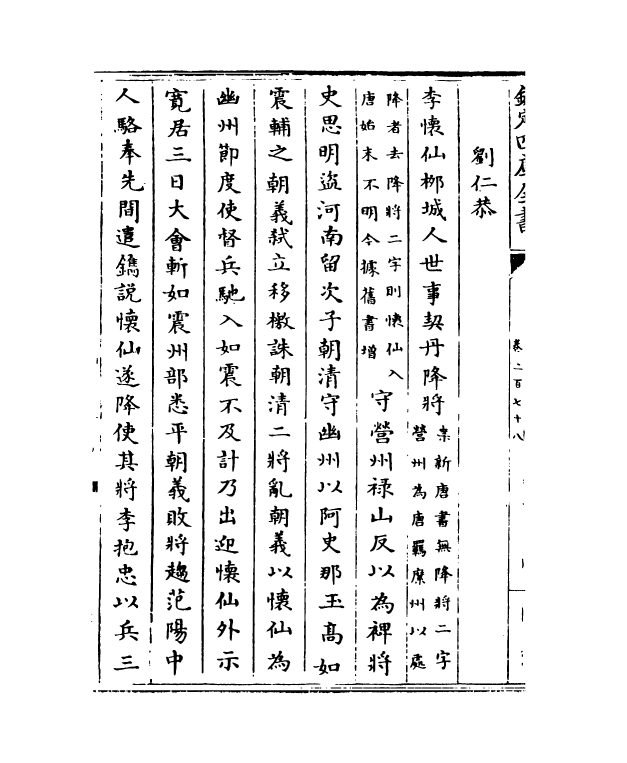 欽定四庫全書
卷二百七十八
劉仁恭
李懷仙栁城人世事契丹降將案新唐書無降將二字
營州為唐羈縻州以處
降者去降將二字則懷仙入
唐始末不明今據舊書增守營州禄山反以為裨將
史思明盗河南留次子朝清守幽州以阿史那玉髙如
震輔之朝義弑立移檄誅朝清二將亂朝義以懷仙為
幽州節度使督兵馳入如震不及計乃出迎懷仙外示
寛居三日大會斬如震州部悉平朝義敗將趨范陽中
人駱奉先間遣鐫説懷仙遂降使其將李抱忠以兵三